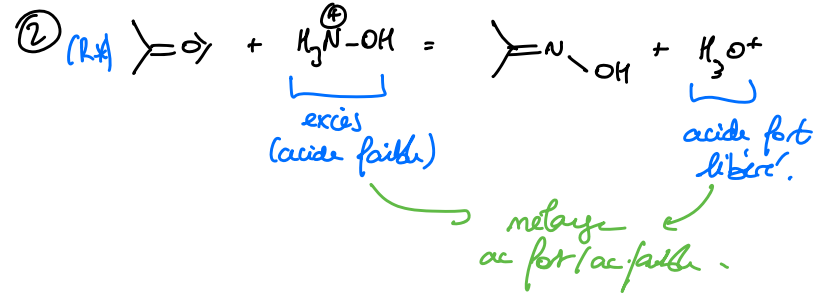 ② (R*) =O + H₃N⊕-OH = =N-OH + H₃O⁺
excès
(acide faible)
acide fort
libéré.
mélange
ac fort/ac.faible.